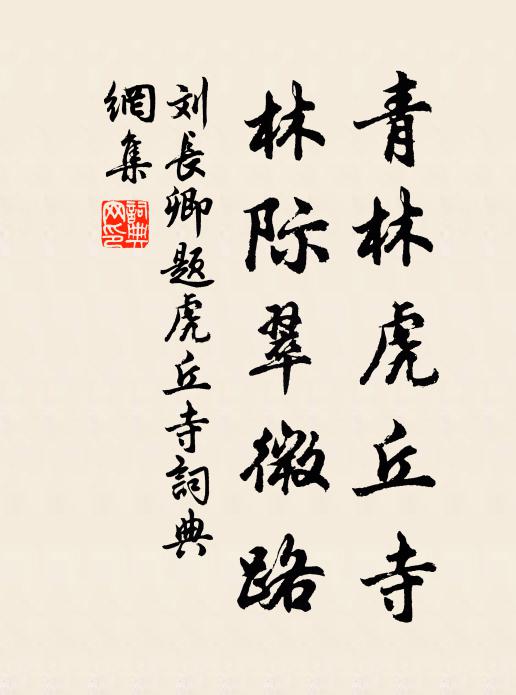 青林虎丘寺
林际翠微路
刘長卿题虎丘寺詞典
網集
詞典网印